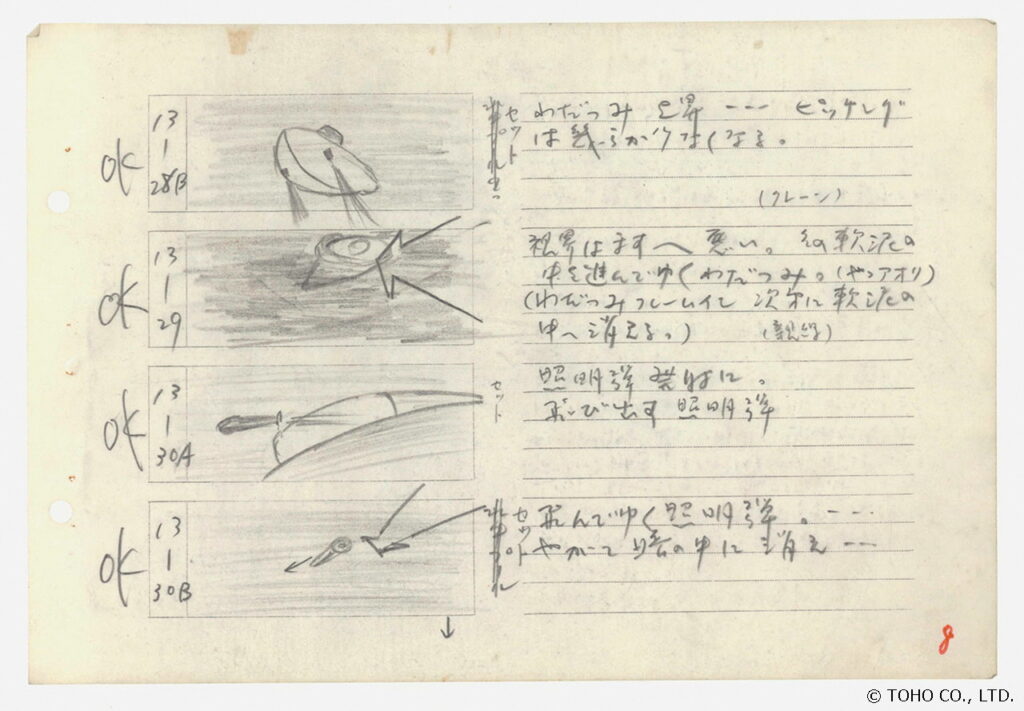 OK
13
1
28B
セット
わだつみ 上昇 --- ピッチング
は幾らか少なくなる。
(クレーン)
OK
13
1
29
視界はますへ 悪い。その軟泥の
中を進んでゆくわだつみ。(ややアオリ)
(わだつみフレームインし 次第に軟泥の
中へ消える。)
OK
13
1
30A
セット
照明弾 発射に。
飛び出す 照明弾
OK
13
1
30B
セット
飛んでゆく照明弾。---
やがて暗の中に消え --
8
© TOHO CO., LTD.